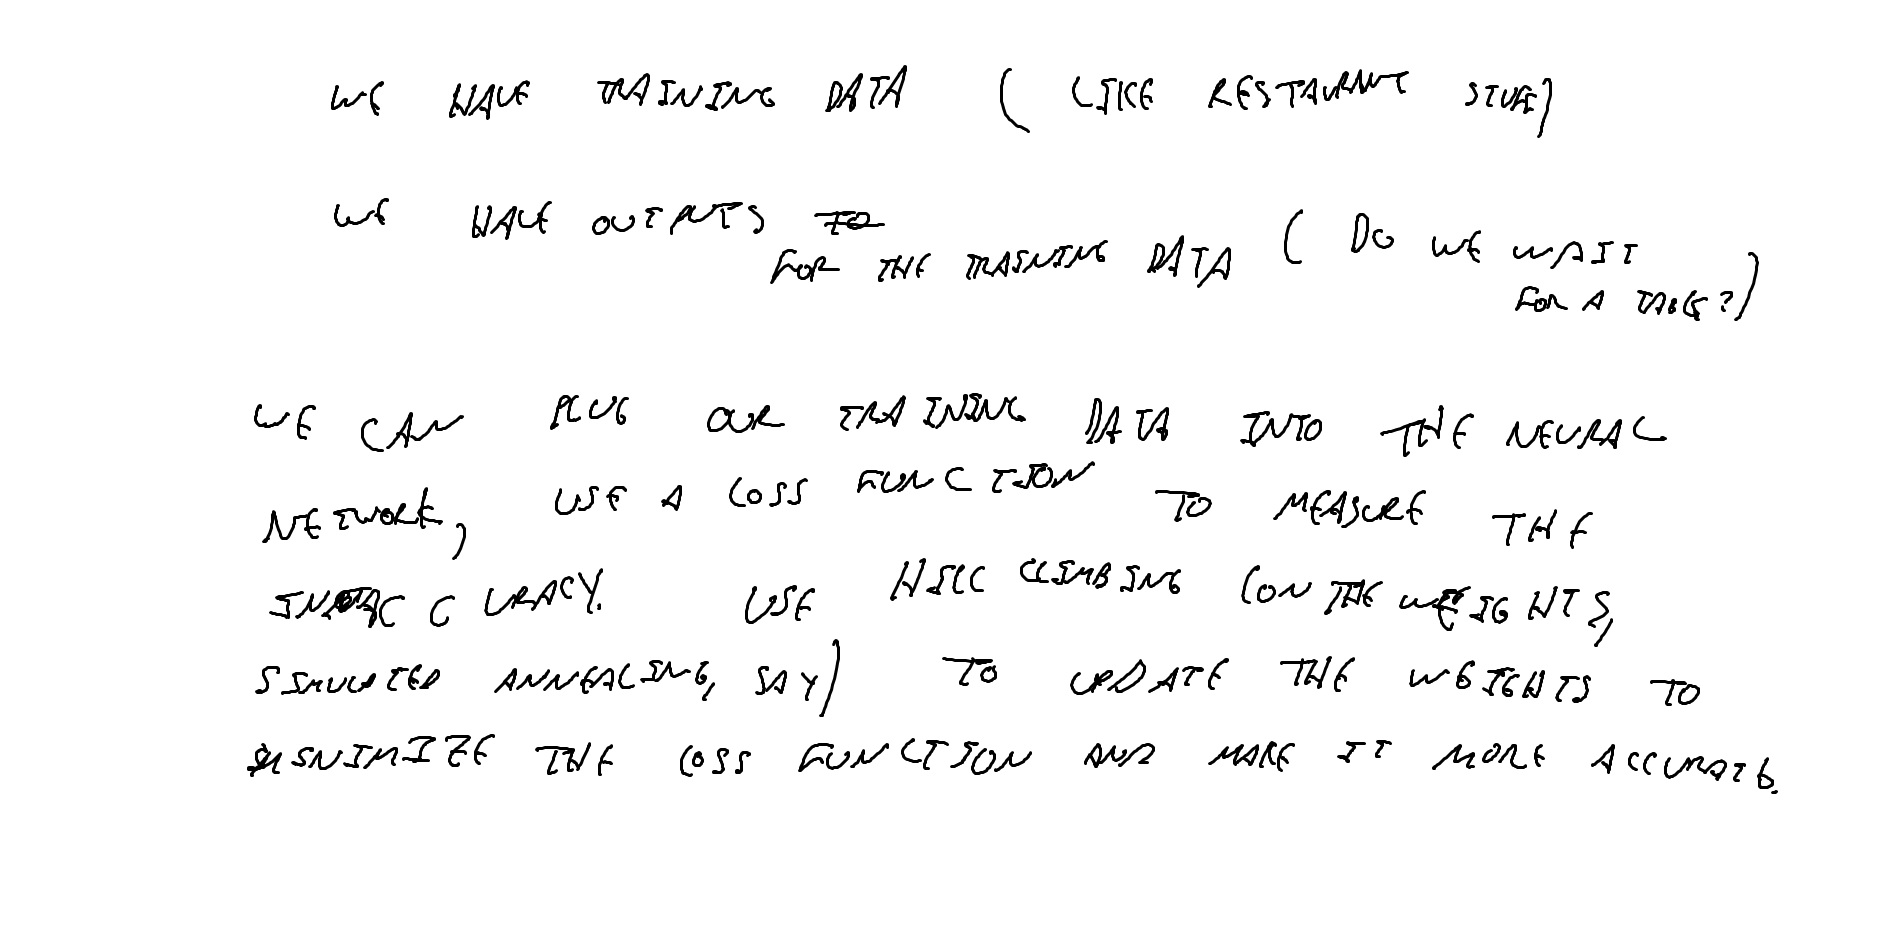 WE HAVE TRAINING DATA (LIKE RESTAURANT STUFF)
WE HAVE OUTPUTS TO
FOR THE TRAINING DATA (DO WE WAIT
FOR A TABLE?)
WE CAN PLUG OUR TRAINING DATA INTO THE NEURAL
NETWORK, USE A LOSS FUNCTION TO MEASURE THE
INACCURACY. USE HILL CLIMBING (ON THE WEIGHTS,
SIMULATED ANNEALING, SAY) TO UPDATE THE WEIGHTS TO
MINIMIZE THE LOSS FUNCTION AND MAKE IT MORE ACCURATE.